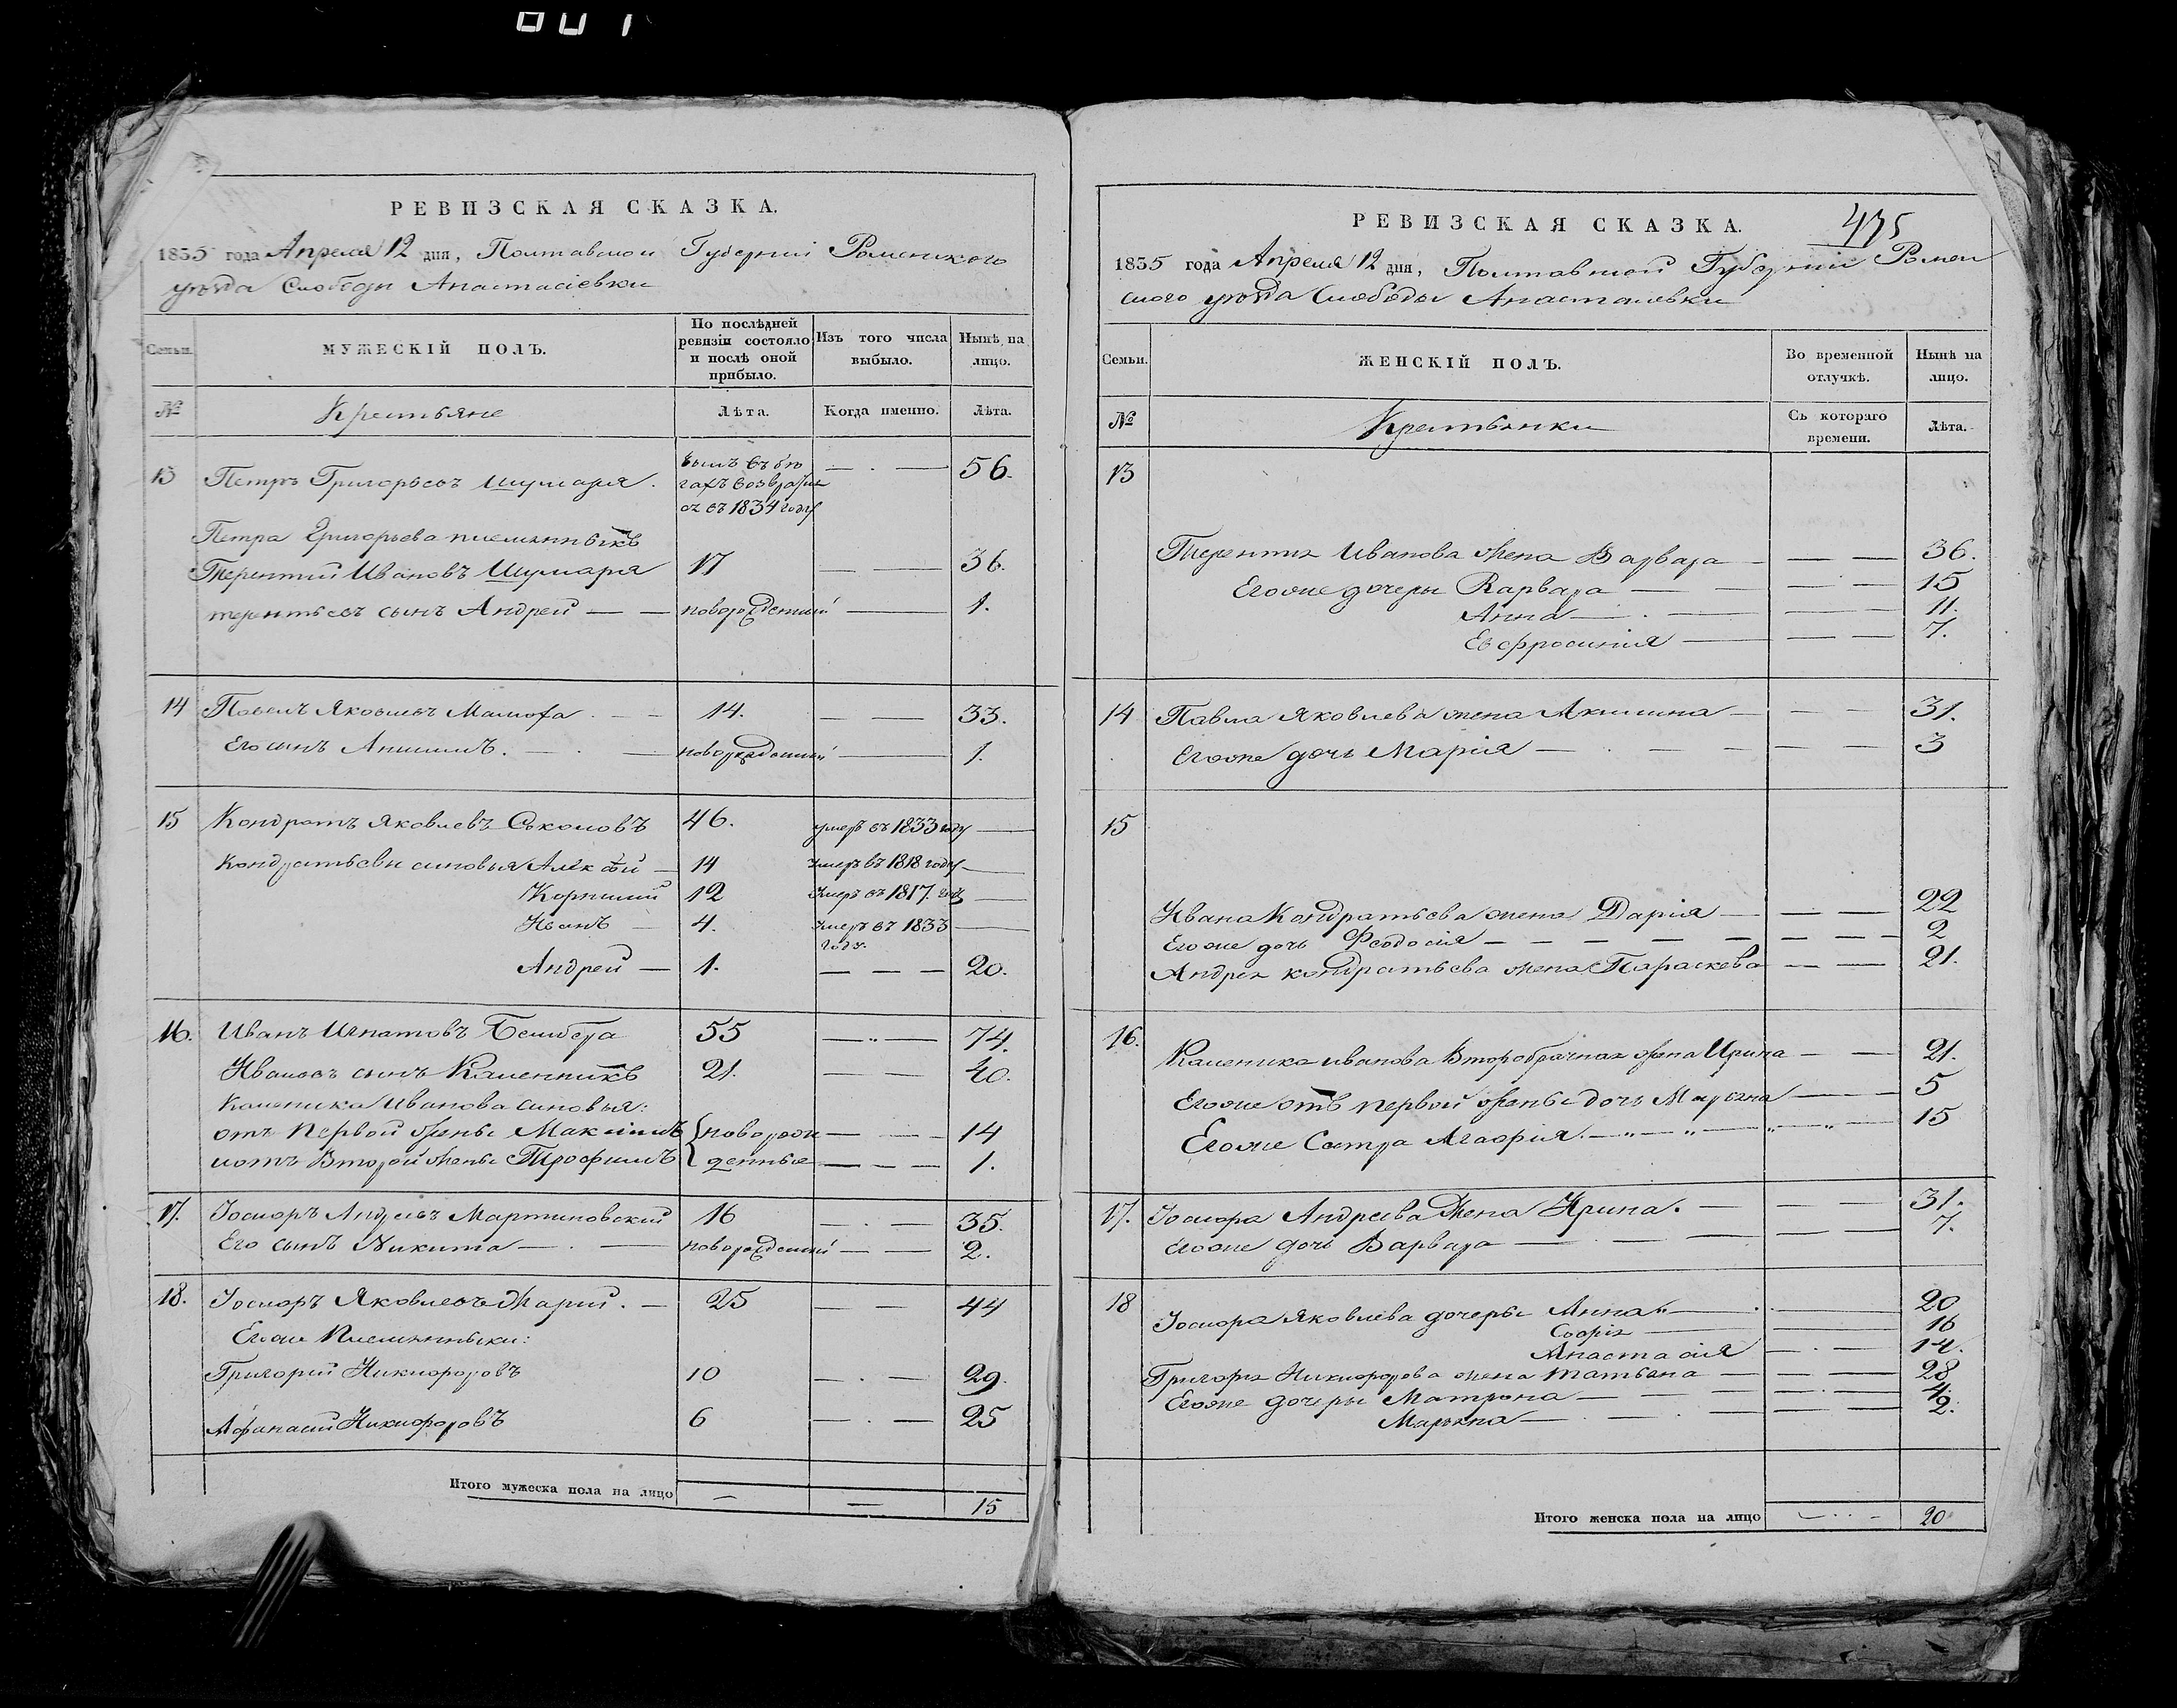 РЕВИЗСКАЯ СКАЗКА.
1835 года Апреля 12 дня, Полтавской Губерніи Роменскаго
уѣзда Слободы Анастасіевки
Семьи.
МУЖЕСКІЙ ПОЛЪ.
По послѣдней ревизіи состояло и послѣ оной прибыло.
Изъ того числа выбыло.
Нынѣ на лицо.
№
Крестьяне
Лѣта.
Когда именно.
Лѣта.
13 Петръ Григорьевъ былъ въ бѣгахъ возвратился въ 1834 году — 56.
Петра Григорьева племянникъ
Терентий Ивановъ 17 — 36.
терентьевъ сынъ Андрей — новорожденный — 1.
14 Павелъ Яковлевъ 14. — 33.
Его сынъ Анисимъ. — новорожденный — 1.
15 Кондратъ Яковлевъ Соколовъ 46. умеръ въ 1833 году —
Кондратьевы сыновья Алексѣй — 14 умеръ въ 1818 году —
Корнилий 12 умеръ въ 1817. году —
Иванъ — 4. умеръ въ 1833 году. —
Андрей — 1. — 20.
16. Иванъ Игнатовъ 55 — 74.
Ивановъ сынъ Калинникъ 21. — 40.
Калиника Иванова сыновья:
отъ первой жены Максимъ новорож — 14
и отъ Второй жены Трофимъ денные — 1.
17. Іосифъ Андреевъ Мартиновский 16 — 35.
Его сынъ Никита — новорожденный — 2.
18. Яковлевъ 25 — 44
Его же племянники:
Григорий Никифоровъ 10 — 29.
Афанасий Никифоровъ 6 — 25
Итого мужеска пола на лицо — — 15
РЕВИЗСКАЯ СКАЗКА.
475
1835 года Апреля 12 дня, Полтавской Губерніи Ромен
скаго уѣзда Слободы Анастасіевки
Семьи.
ЖЕНСКІЙ ПОЛЪ.
Во временной отлучкѣ.
Нынѣ на лицо.
№
Крестьянки
Съ котораго времени.
Лѣта.
13
Терентия Иванова жена Варвара — 36.
Его же дочеры Варвара — 15
Анна — 11.
Евфросиния — 7.
14 Павла Яковлева жена Акилина — 31.
Его же дочь Марія — 3
15
Ивана Кондратьева жена Дарія — 22
Его же дочь Феодосія — 2
Андрея кондратьева жена Параскева — 21.
16. Калиника иванова Второбрачная жена Ирина — 21.
Его же отъ первой жены дочь — 5
Его же Сестра Агафія. — 15
17. Андреева Жена Ирина. — 31.
Его же дочь Варвара — 7.
18 Яковлева дочеры Анна — 20
Софія — 16
Анастасія — 14.
Григорія Никифорова жена татьяна — 28
Его же дочеры Матрона — 4.
Марина — 2.
Итого женска пола на лицо — 20